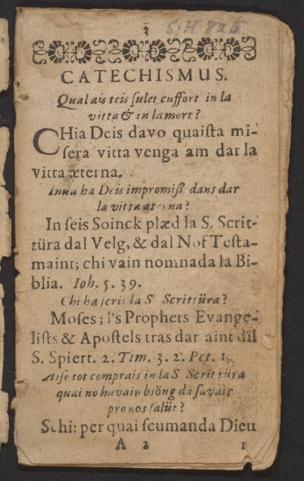 3
C H 326
CATECHISMUS.
Qual ais teis sulet cuffort in la
vitta & in la mort?
CHia Deis davo quaista mi-
sera vitta venga am dar la
vitta æterna.
Inua ha Deis impromiß dans dar
la vitta æterna?
In seis Soinck plæd la S. Scrit-
türa dal Velg, & dal Nof Testa-
maint; chi vain nomnada la Bi-
blia. Ioh. 5. 39.
Chi ha scris la S Scrittüra?
Moses; l's Prophets Evange-
lists & Apostels tras dar aint dil
S. Spiert. 2. Tim. 3. 2. Pet. 1.
Aise tot comprais in la S Scrittüra
quai no havain bsöng da savair
pro nos salüt?
Schi: per quai scumanda Dieu
A 2
1